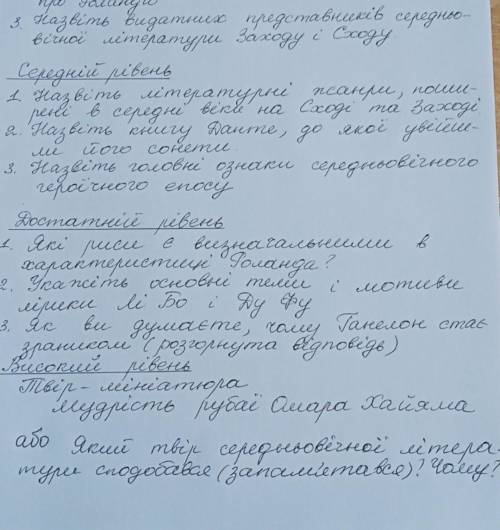 про Роланда
3. Назвіть видатних представників середньо-
вічної літератури Заходу і Сходу
Середній рівень
1. Назвіть літературні жанри, поши-
рені в середні віки на Сході та Заході
2. Назвіть книгу Данте, до якої увійш-
ли його сонети.
3. Назвіть головні ознаки середньовічного
героїчного епосу
Достатній рівень
1. Які риси є визначальними в
характеристиці Роланда?
2. Укажіть основні теми і мотиви
лірики Лі Бо і Ду Фу
3. Як ви думаєте, чому Ганелон стає
зрадником (розгорнута відповідь)
Високий рівень
Твір-мініатюра
Мудрість рубаї Омара Хайяма
або Який твір середньовічної літера-
тури сподобався (запам'ятався)? Чому?